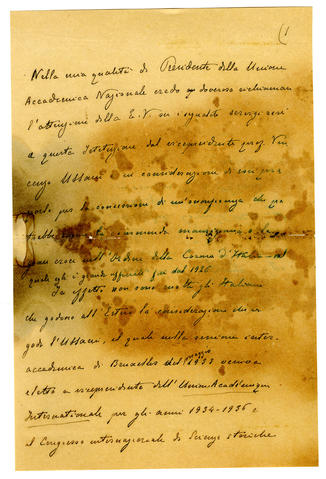 (1
Nella mia qualità di Presidente della Unione
Accademica Nazionale credo doveroso richiamare
l'attenzione della E. V. su i segnalati servigi resi
a questa Istituzione dal vicepresidente prof. Vin
cenzo Ussani in considerazione di una pro
posta per la concessione di un'onorificenza che po
trebbe la commenda
croce nell'Ordine della Corona d'Italia nel
quale egli è grande ufficiale fin dal 1926
In effetti non sono molti gli Italiani
che godono all'Estero la considerazione che vi
gode l'Ussani, il quale nella sessione inter-
accademica di Bruxelles del maggio 1933 veniva
eletto a vicepresidente dell'Union Académique
Internationale per gli anni 1934-1936 e
al Congresso internazionale di Scienze storiche